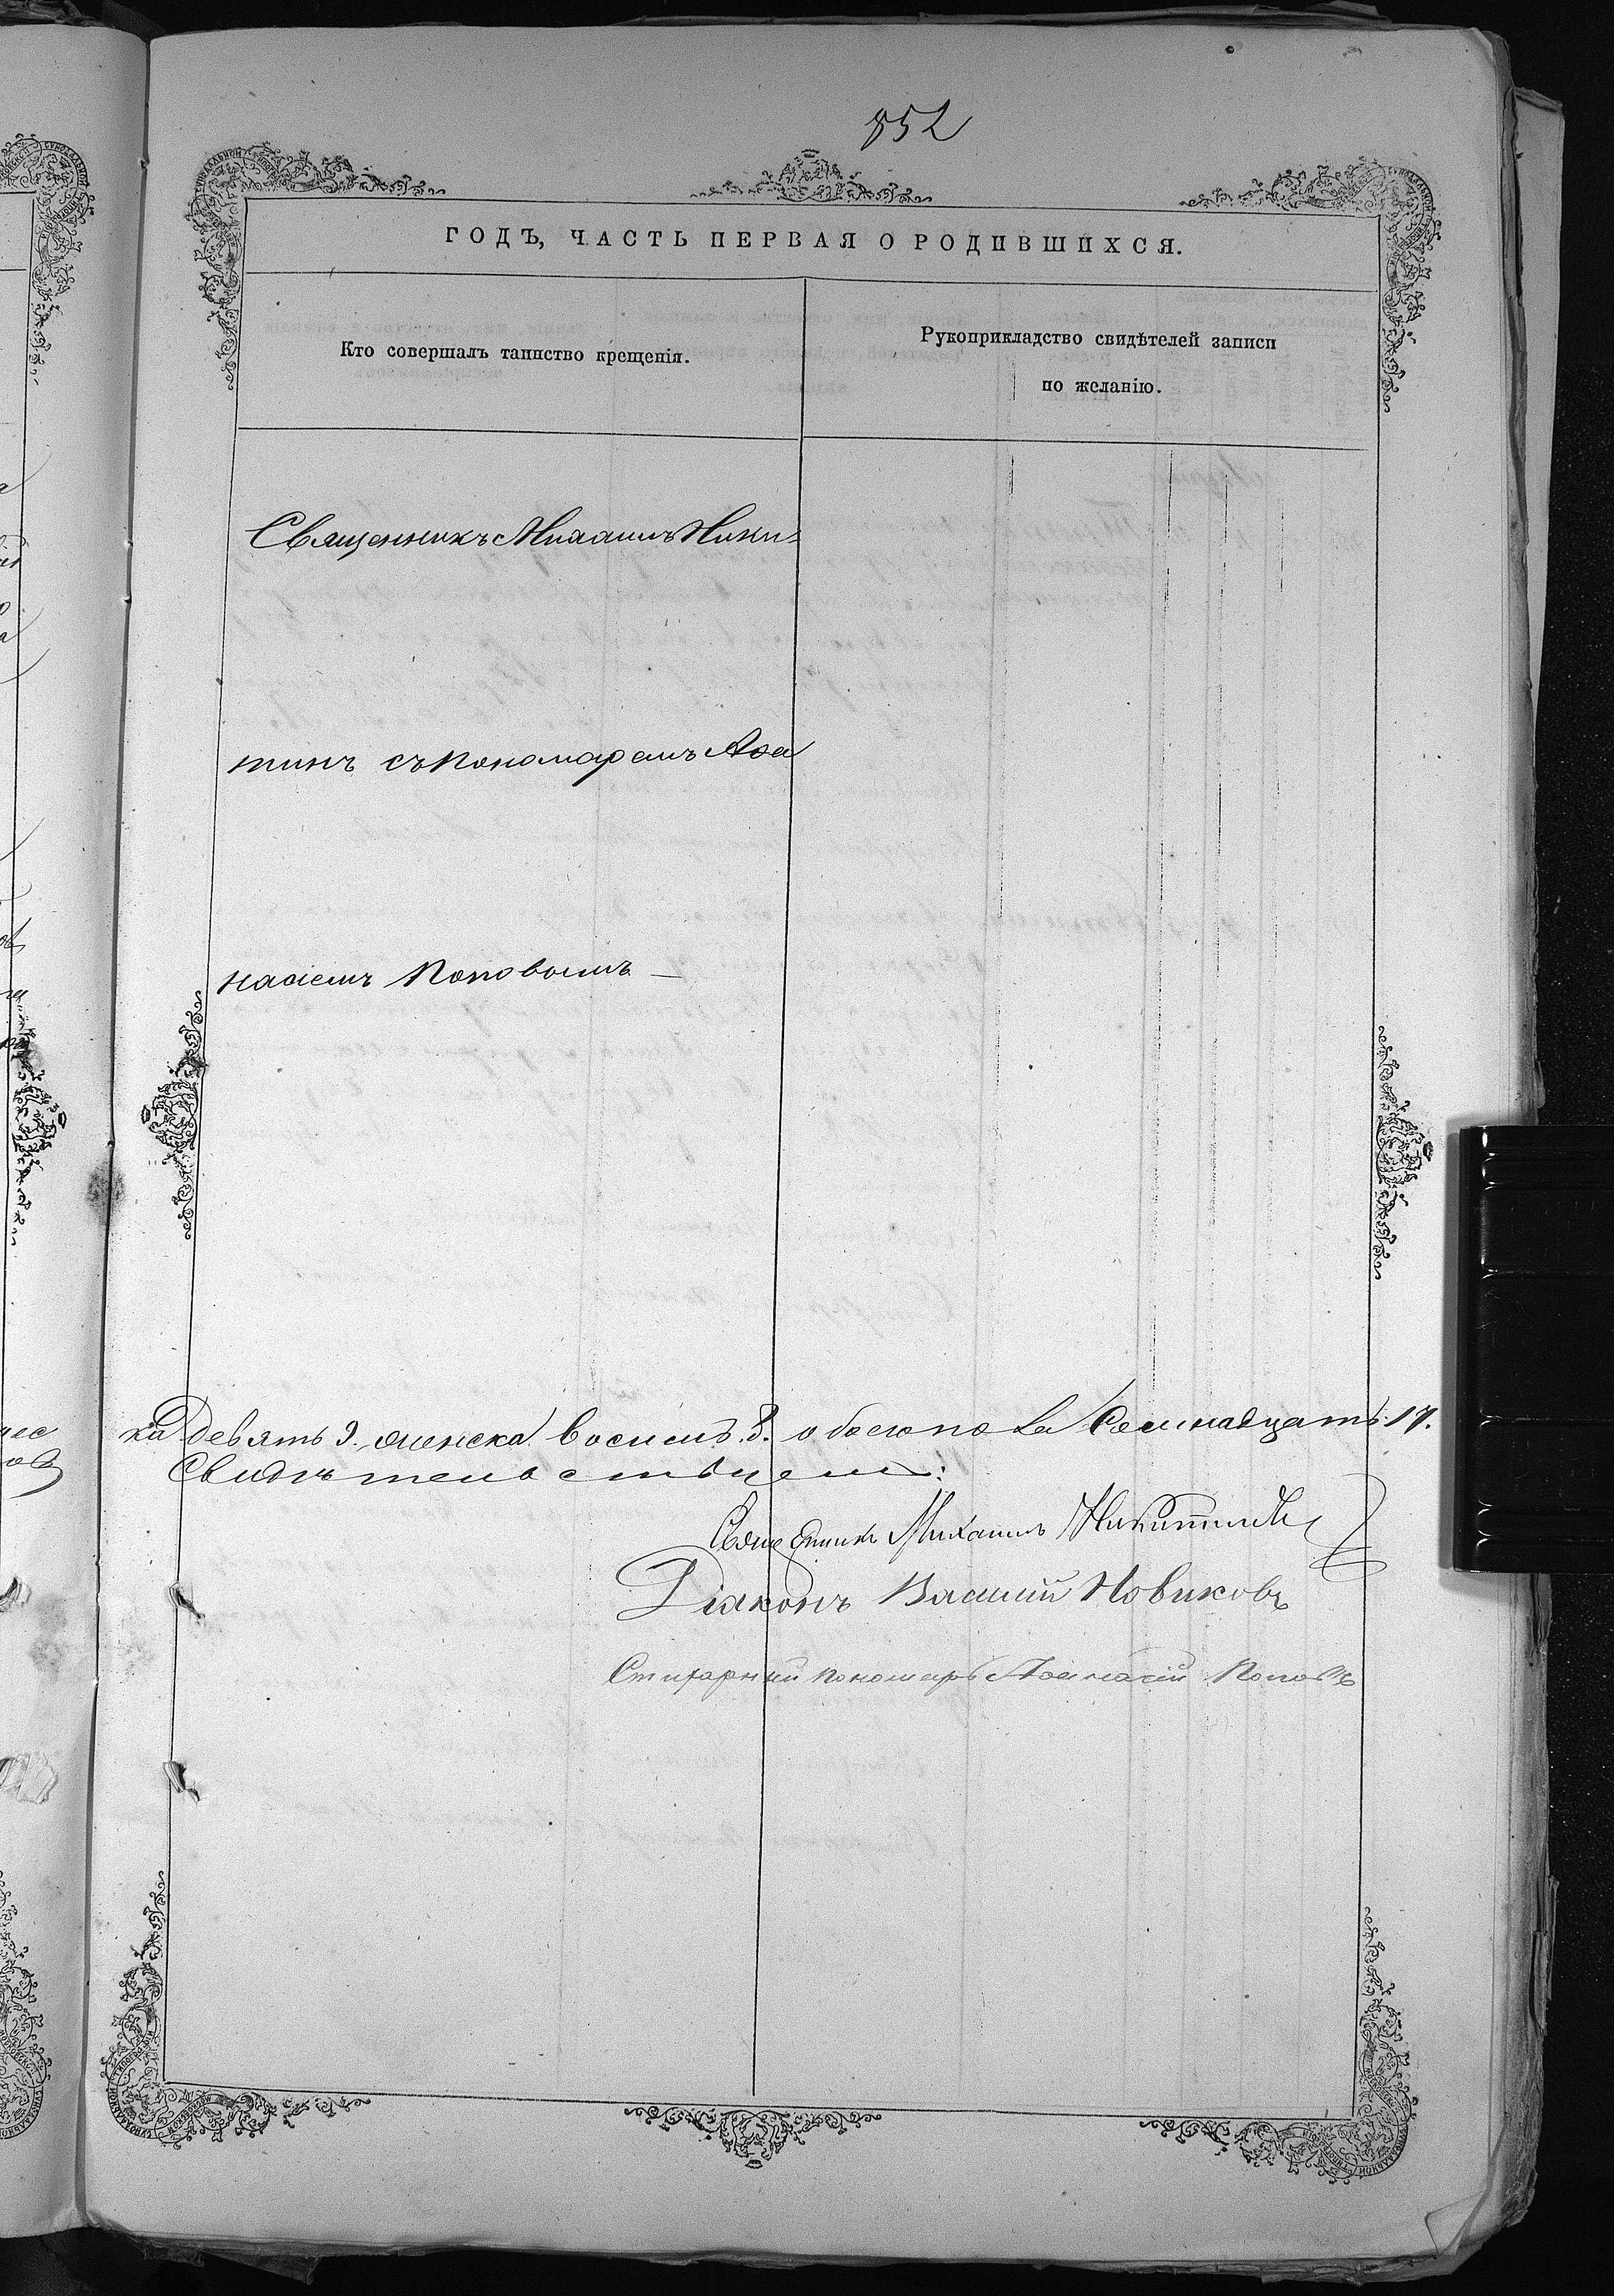 852
ГОДЪ, ЧАСТЬ ПЕРВАЯ О РОДИВШИХСЯ.
Кто совершалъ таинство крещенія.
Рукоприкладство свидѣтелей записи
по желанію.
Священникъ Михаилъ Ники-
тинъ съ пономаремъ Аѳа
насіемъ Поповымъ —
ка девять 9. женска восемь. 8. обоего пола Семнадцать. 17.
Свидѣтельствуемъ:
Священникъ Михаилъ Никитинъ
Діаконъ Василій Новиковъ
Стихарный пономарь Аѳанасій Поповъ